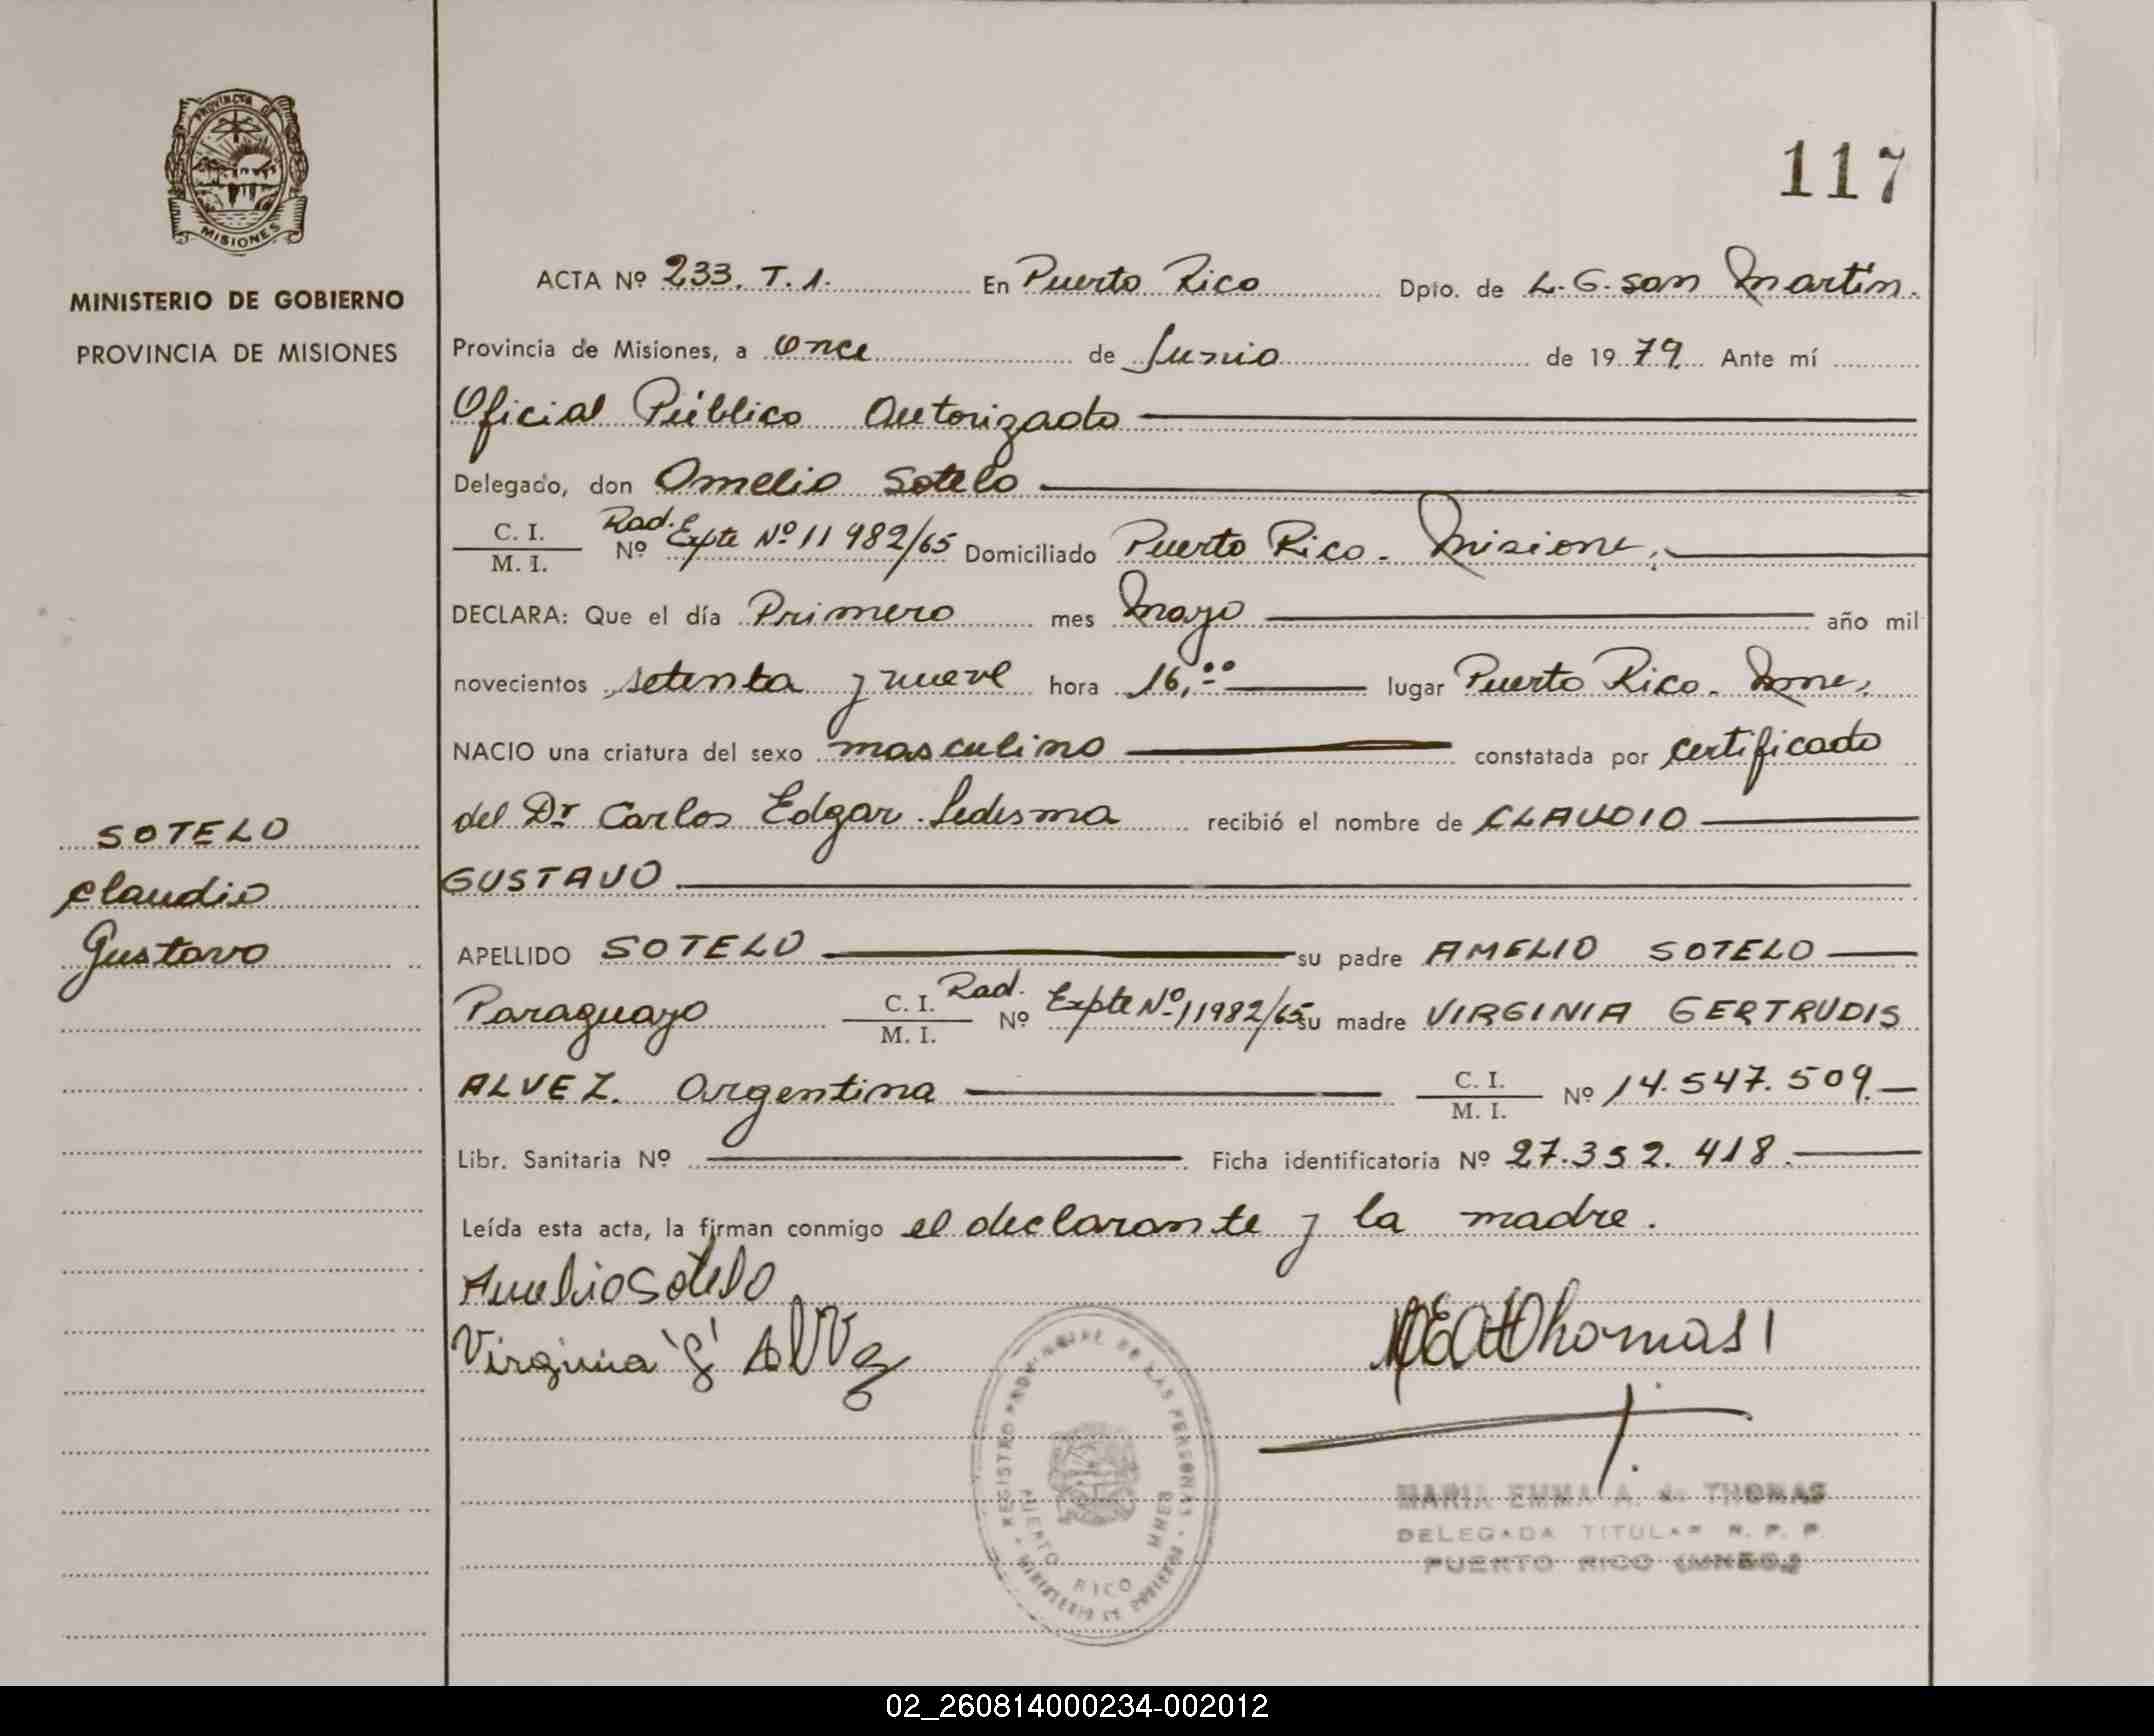 PROVINCIA DE
MISIONES
MINISTERIO DE GOBIERNO
PROVINCIA DE MISIONES
117
ACTA Nº 233. T. 1. En Puerto Rico Dpto. de L. G. San Martín.
Provincia de Misiones, a once de Junio de 1979 Ante mí
Oficial Público Autorizado
Delegado, don Amelio Sotelo
C. I. / M. I. Nº Rad. Expte Nº 11982/65 Domiciliado Puerto Rico - Misiones.
DECLARA: Que el día Primero mes Mayo año mil
novecientos setenta y nueve hora 16,00 lugar Puerto Rico. Mnes.
NACIO una criatura del sexo masculino constatada por certificado
del Dr Carlos Edgar Ledesma recibió el nombre de CLAUDIO
GUSTAVO
SOTELO
Claudio
Gustavo
APELLIDO SOTELO su padre AMELIO SOTELO
Paraguayo C. I. / M. I. Nº Rad. Expte Nº 11982/65 su madre VIRGINIA GERTRUDIS
ALVEZ. Argentina C. I. / M. I. Nº 14.547.509.
Libr. Sanitaria Nº Ficha identificatoria Nº 27.352.418.
Leída esta acta, la firman conmigo el declarante y la madre.
Amelio Sotelo
Virginia G Alvez
MEA Thomas
REGISTRO PROVINCIAL DE LAS PERSONAS
MINISTERIO DE GOBIERNO
PUERTO RICO MNES
MARIA EMMA A. de THOMAS
DELEGADA TITULAR R. P. P.
PUERTO RICO (MNES.)
02_260814000234-002012